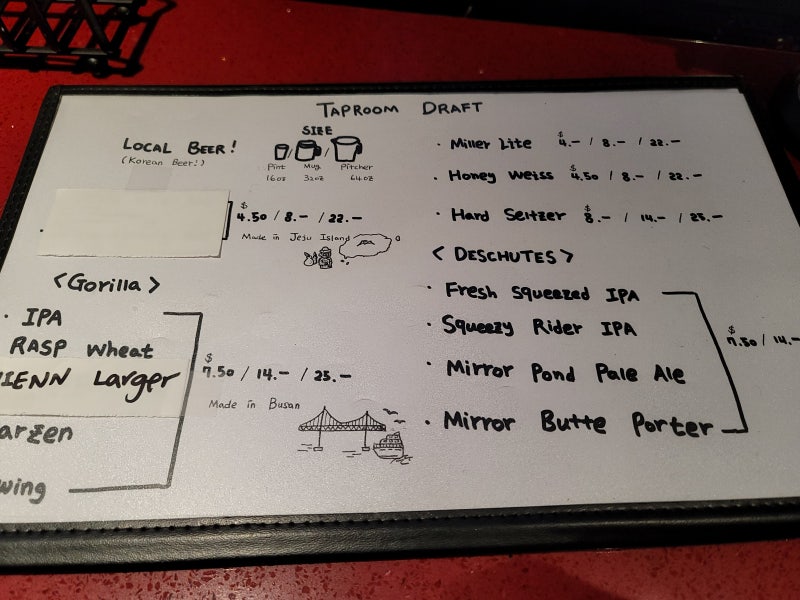 TAPROOM DRAFT
LOCAL BEER!
(Korean Beer!)
SIZE
Pint / Mug / Pitcher
16oz 32oz 64oz
$
4.50 / 8.- / 22.-
Made in Jeju Island
<Gorilla>
· IPA
RASP Wheat
IENN Larger
arzen
wing
$
7.50 / 14.- / 25.-
Made in Busan
· Miller Lite $4.- / 8.- / 22.-
· Honey Weiss $4.50 / 8.- / 22.-
· Hard Seltzer $8.- / 14.- / 25.-
<DESCHUTES>
· Fresh Squeezed IPA
· Squeezy Rider IPA
· Mirror Pond Pale Ale
· Mirror Butte Porter
$
7.50 / 14.-